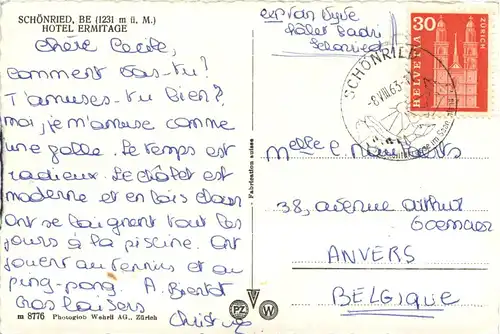 SCHÖNRIED, BE (1231 m ü. M.)
HOTEL ERMITAGE
Chère Cécile,
Comment vas-tu?
T'amuses-tu bien?
moi, je m'amuse comme
une folle. Le temps est
radieux. Le châlet est
moderne et en bois clair
Ont se baignent tout les
jours à la piscine. Ont
jouent au tennis et au
ping-pong. A Bientot
Gros baisers
m 8776 Photoglob Wehrli AG., Zürich
Fabrication suisse
exp Van
Schönried
SCHÖNRIED
-8.VIII.63-
HELVETIA
30
ZÜRICH
Melle C.
38, avenue Arthur
Goemaere
ANVERS
BELGIQUE
PZ W